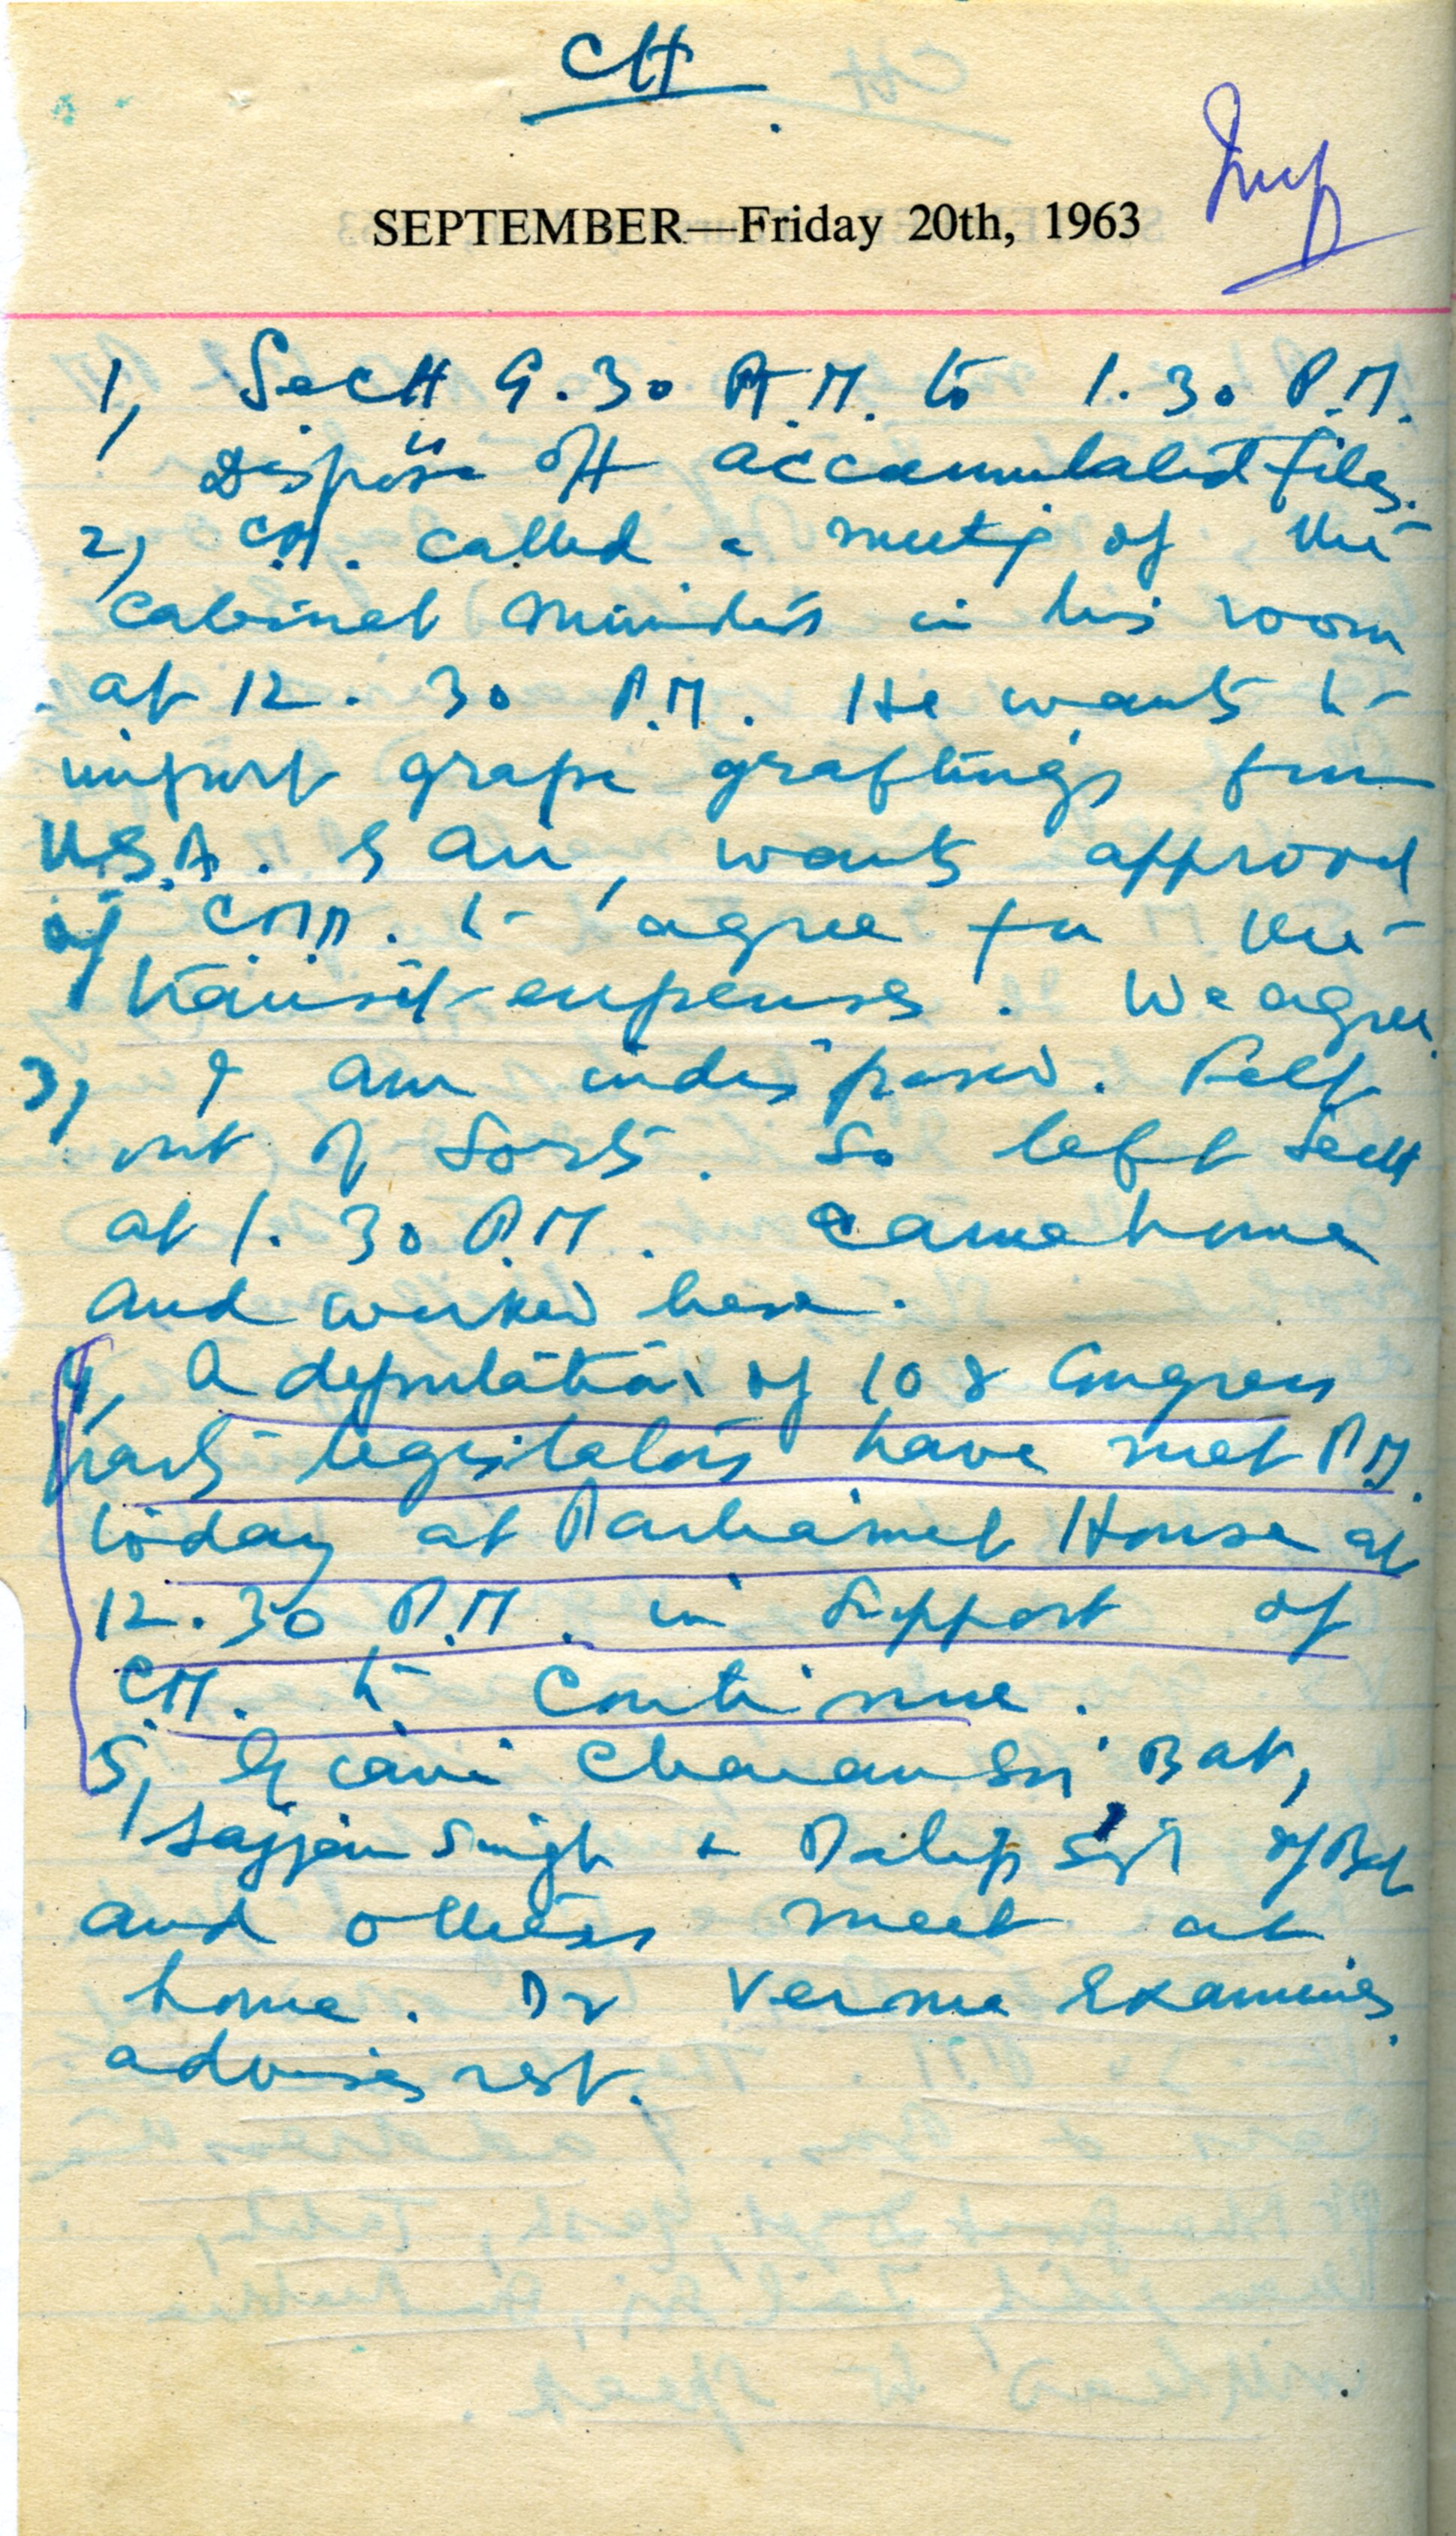 CH
Imp
SEPTEMBER—Friday 20th, 1963
1, SecH 9.30 A.M. to 1.30 P.M.
Dispose off accumulated files.
2, C.M. called a meeting of the
cabinet Ministers in his room
at 12.30 P.M. He wants to
import grape graftings from
U.S.A. by air, wants approval
of to agree for the
transit expenses. We agree.
3, I am indisposed. Felt
out of sorts. So left SecH
at 1.30 P.M. came home
and worked here.
4, A deputation of 108 Congress
party legislators have met P.M.
today at Parliament House at
12.30 P.M. in support of
C.M. to continue.
5, Giani Charan Bat,
Sajjan Singh & Dalip Sgh of
and others meet at
home. Dr Verma Examines.
advises rest.